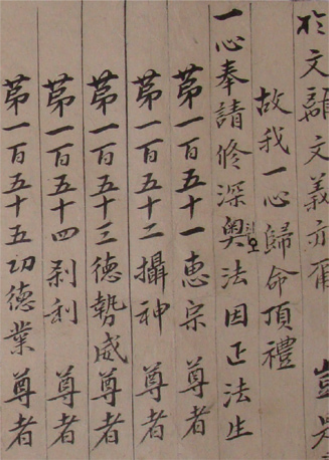 於文辭文義亦爾 豈
故我一心歸命頂禮
一心奉請修深奧法因正法生
苐一百五十一惠宗 尊者
苐一百五十二攝神 尊者
苐一百五十三德勢威 尊者
苐一百五十四刹利 尊者
苐一百五十五功德業 尊者